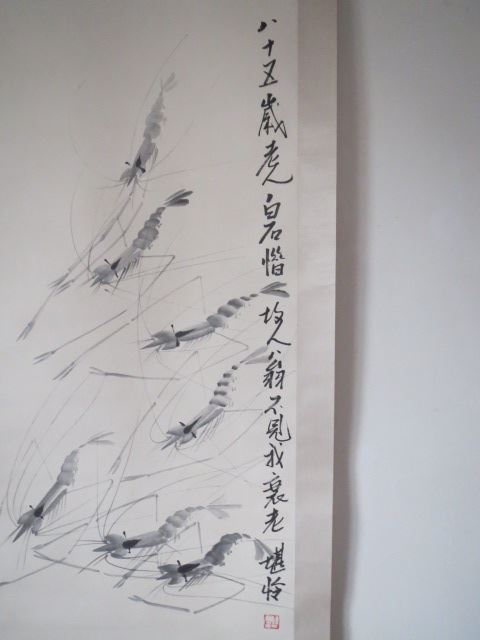 八十五歲老人白石惜故人翁不見我衰老堪怜